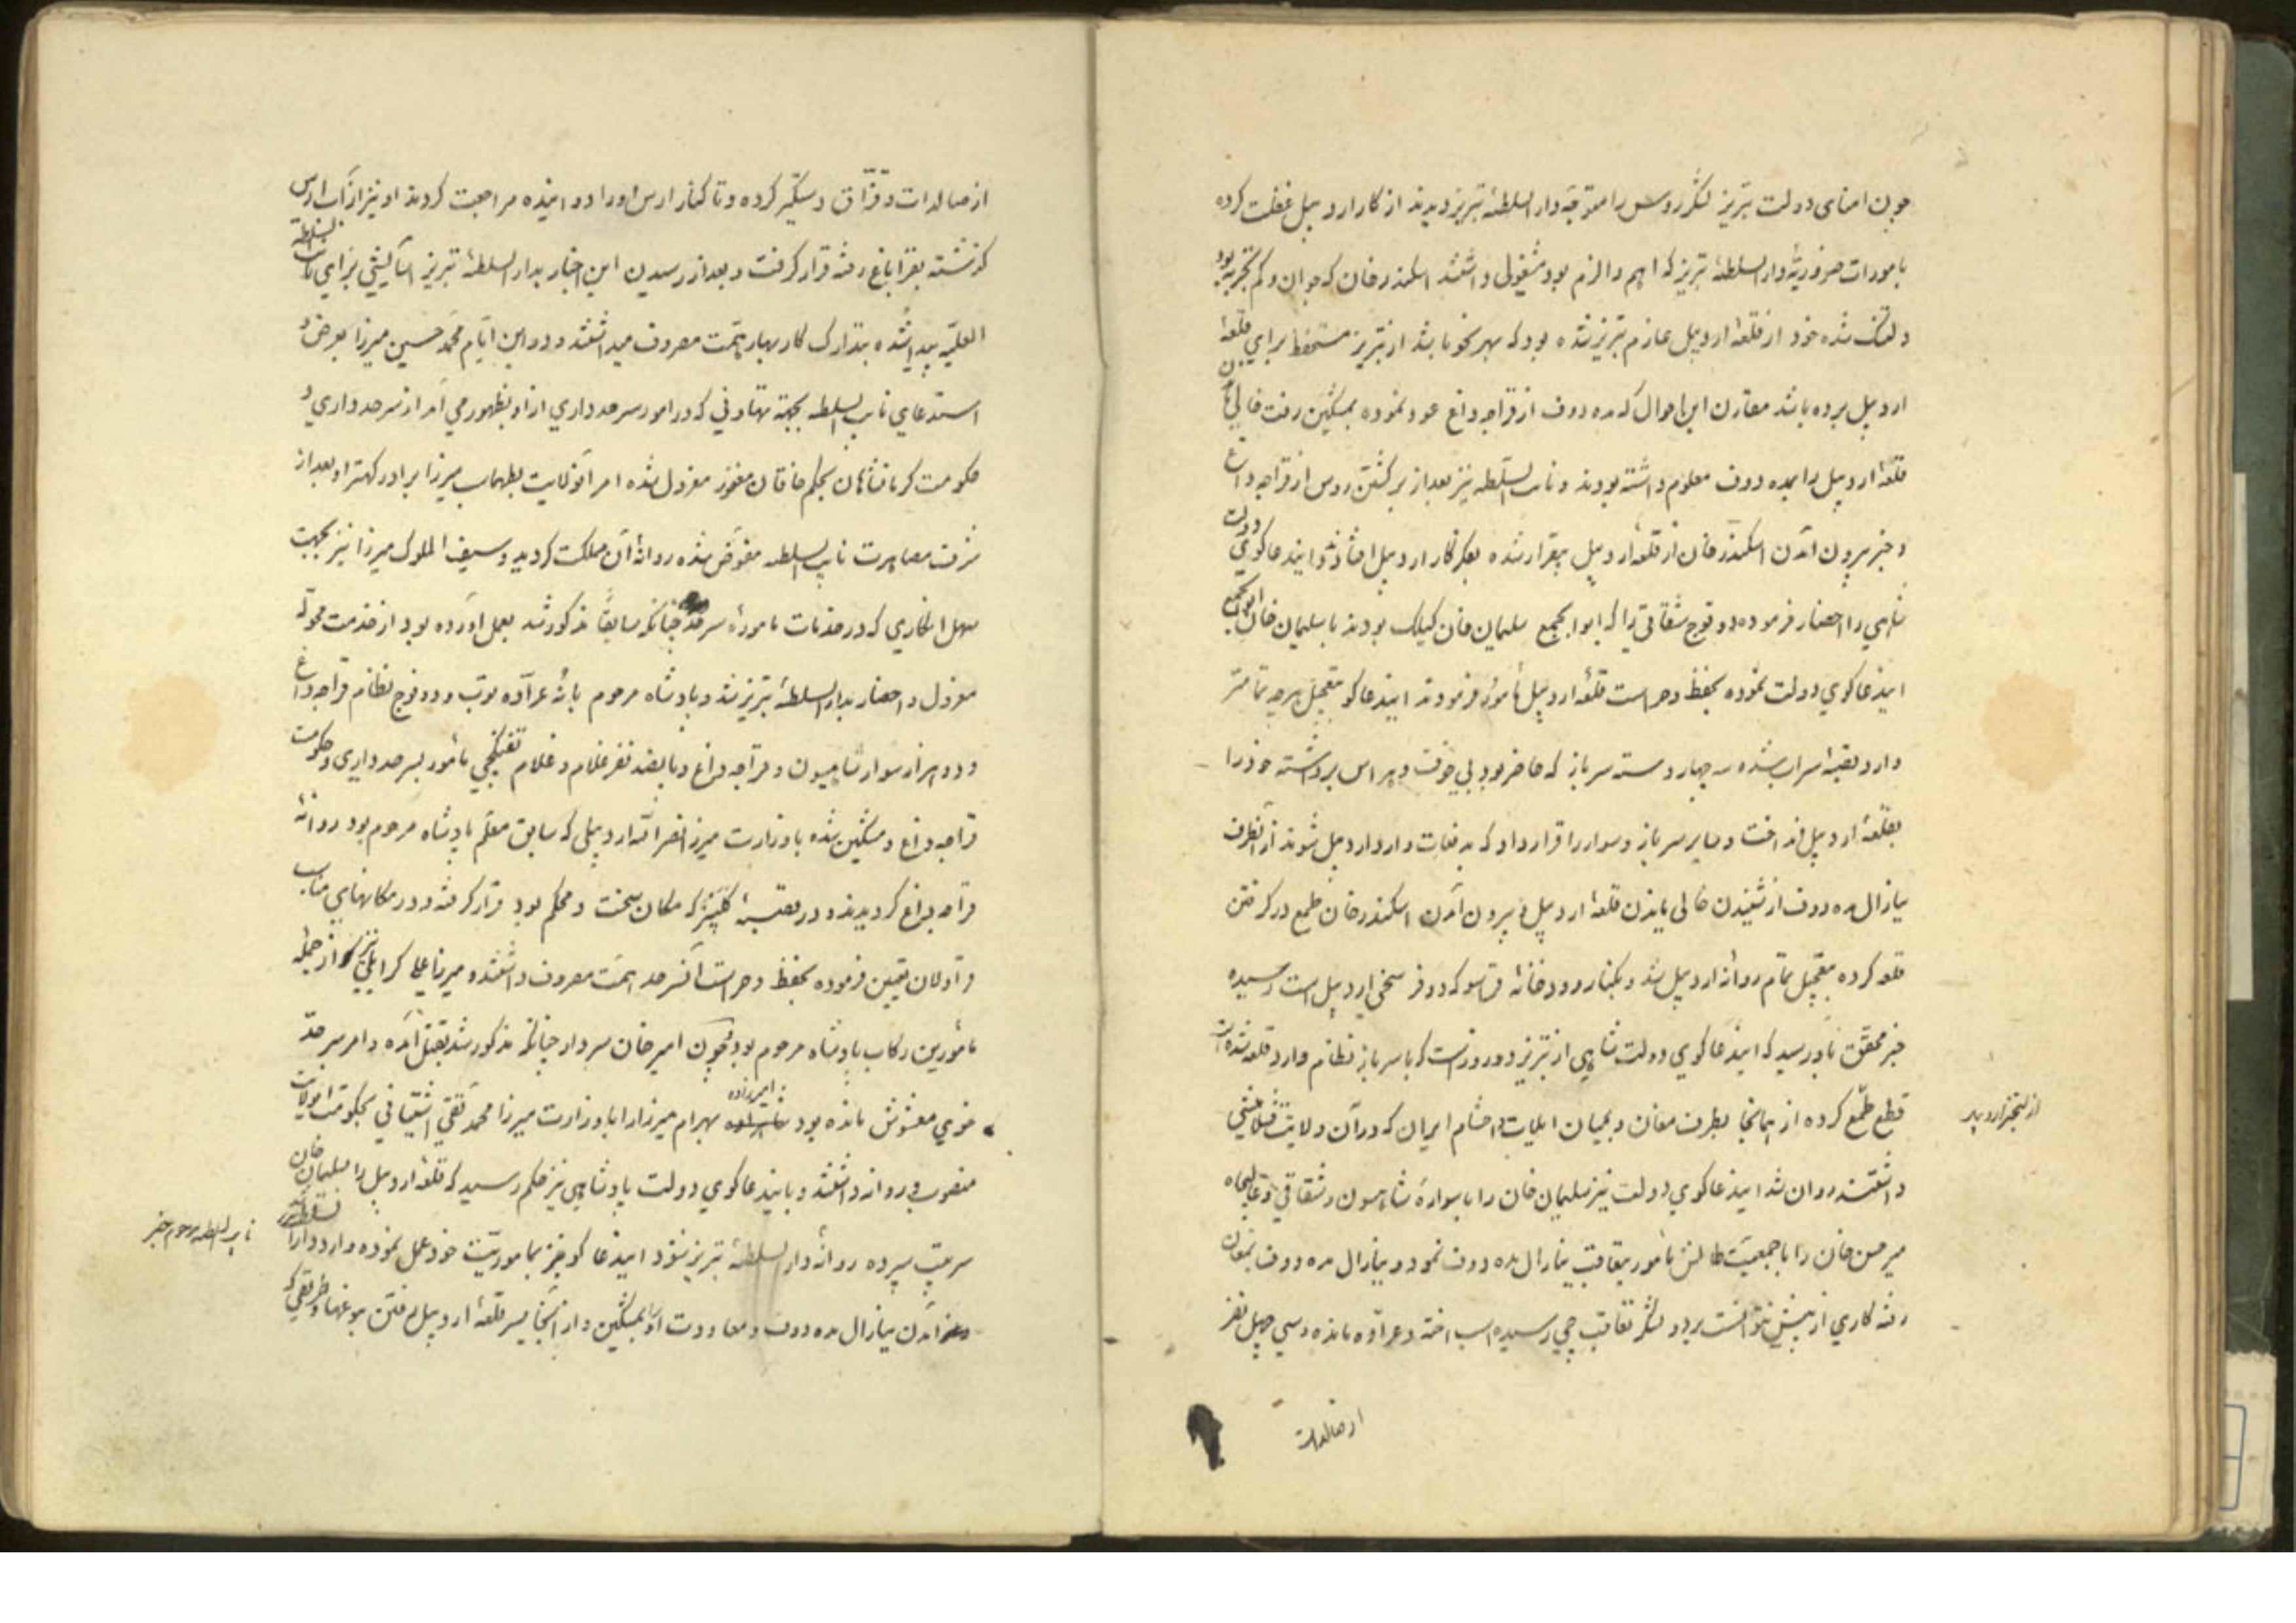 چون امنای دولت تبریز لشکر روس را متوجّه دار السلطنهٔ تبریز دیدند از کار اردبیل غفلت کرده
بامورات ضروریّهٔ دار السلطنهٔ تبریز که اهم و الزم بود مشغول داشتند اسکندر خان که جوان و کم تجربه بود
دلتنک شده خود از قلعهٔ اردبیل عازم تبریز شده بود که بهر نحو باشد از تبریز مستحفظ برای قلعهٔ
اردبیل برده باشد مقارن این احوال که مده دوف از قراجه داغ عود نموده بمشکین رفت خالی
قلعهٔ اردبیل را بمده دوف معلوم داشته بودند و نایب السلطنه نیز بعد از برکشتن روس از قراجه داغ
و خبر بیرون آمدن اسکندر خان از قلعهٔ اردبیل بیقرار شده بفکر کار اردبیل افتادند و ایندعاکوی دولت
شاهی را احضار فرموده دو فوج شقاقی را که ابوابجمع سلیمان خان کیلک بودند با سلیمان خان ابوابجمع
ایندعاکوی دولت نموده بحفظ و حراست قلعهٔ اردبیل مأمور فرمودند ایندعاکو بتعجیل هرچه تمامتر
وارد قصبهٔ سراب شده سه چهار دسته سرباز که حاضر بود بی خوف و هراس برداشته خود را
بقلعهٔ اردبیل انداخت و سایر سرباز و سوار را قرار داد که بدفعات وارد اردبیل شوند از آنطرف
ینارال مده دوف از شنیدن خالی ماندن قلعهٔ اردبیل و بیرون آمدن اسکندر خان طمع در کرفتن
قلعه کرده بتعجیل تمام روانهٔ اردبیل شد و بکنار رودخانهٔ قراسو که دو فرسخی اردبیل است رسیده
خبر محقق باو رسید که ایندعاکوی دولت شاهی از تبریز دو روز است که با سرباز نظام وارد قلعه شده است
قطع طمع کرده از همانجا بطرف مغان و بمیان ایلیات و احشام ایران که در آن ولایت قشلامیشی
از لنجزاردید
داشتند روان شد ایندعاکوی دولت نیز سلیمان خان را با سوارهٔ شاهسون و شقاقی و عالیجاه
میر حسن خان را با جمعیت طالش مأمور بتعاقب ینارال مده دوف نمود و ینارال مده دوف بمغان
رفته کاری از پیش نتوانست برد و لشکر تعاقب چی رسیده اسب اخته و عرّاده مانده و سی چهل نفر
از صالدات
از صالدات و قزّاق دستکیر کرده و تا کنار ارس او را دوانیده مراجعت کردند او نیز از آب ارس
کذشته بقراباغ رفته قرار کرفت و بعد از رسیدن این اخبار بدار السلطنهٔ تبریز آسایشی برای نایب السلطنه
العلیّه پیدا شده بتدارک کار بهار همّت مصروف میداشتند و در این ایّام محمّد حسین میرزا بعرض و
استدعای نایب السلطنه بجهة تهاونی که در امور سرحد داری از او بظهور می آمد از سرحد داری و
حکومت کرمانشاهان بحکم خاقان مغفور معزول شده امر آنولایت بطهماسب میرزا برادر کهتر او بعد از
شرف مصاهرت نایب السلطنه مفوّض شده روانهٔ آن مملکت کردید و سیف الملوک میرزا نیز بجهت
سهل انکاری که در خدمات مامورهٔ سرحد چنانکه سابقاً مذکور شد بعمل آورده بود از خدمت محوله
معزول و احضار بدار السلطنهٔ تبریز شد و پادشاه مرحوم با نه عرّاده توپ و دو فوج نظام قراجه داغ
و دو هزار سوار شاهیسون و قراجه داغ و پانصد نفر غلام و غلام تفنکچی مأمور بسرحد داری و حکومت
قراجه داغ و مشکین شده با وزارت میرزا نصر الله اردبیلی که سابق معلم پادشاه مرحوم بود روانهٔ
قراجه داغ کردیدند و در قصبهٔ کلیبر که مکان سخت و محکم بود قرار کرفته و در مکانهای مناسب
قراولان تعیین فرموده بحفظ و حراست آنسرحد همّت مصروف داشتند و میرزا علی کرایلی نیز از جمله
مأمورین رکاب پادشاه مرحوم بود و چون امیر خان سردار چنانکه مذکور شد بقتل آمده و امر سرحدّ
خوی مغشوش مانده بود امیرزاده بهرام میرزا را با وزارت میرزا محمد تقی آشتیانی بحکومت آنولایت
منصوب و روانه داشتند و بایندعاکوی دولت پادشاهی نیز حکم رسید که قلعهٔ اردبیل را بسلیمان خان
سرتیپ سپرده روانهٔ دار السلطنهٔ تبریز شود ایندعاکو نیز بماموریّت خود عمل نموده وارد دار السلطنهٔ تبریز شد
نایب السلطنه مرحوم خبر
آمدن ینارال مده دوف و معاودت او بمشکین و از آنجا بسر قلعهٔ اردبیل رفتن بوغنها و طریقی که